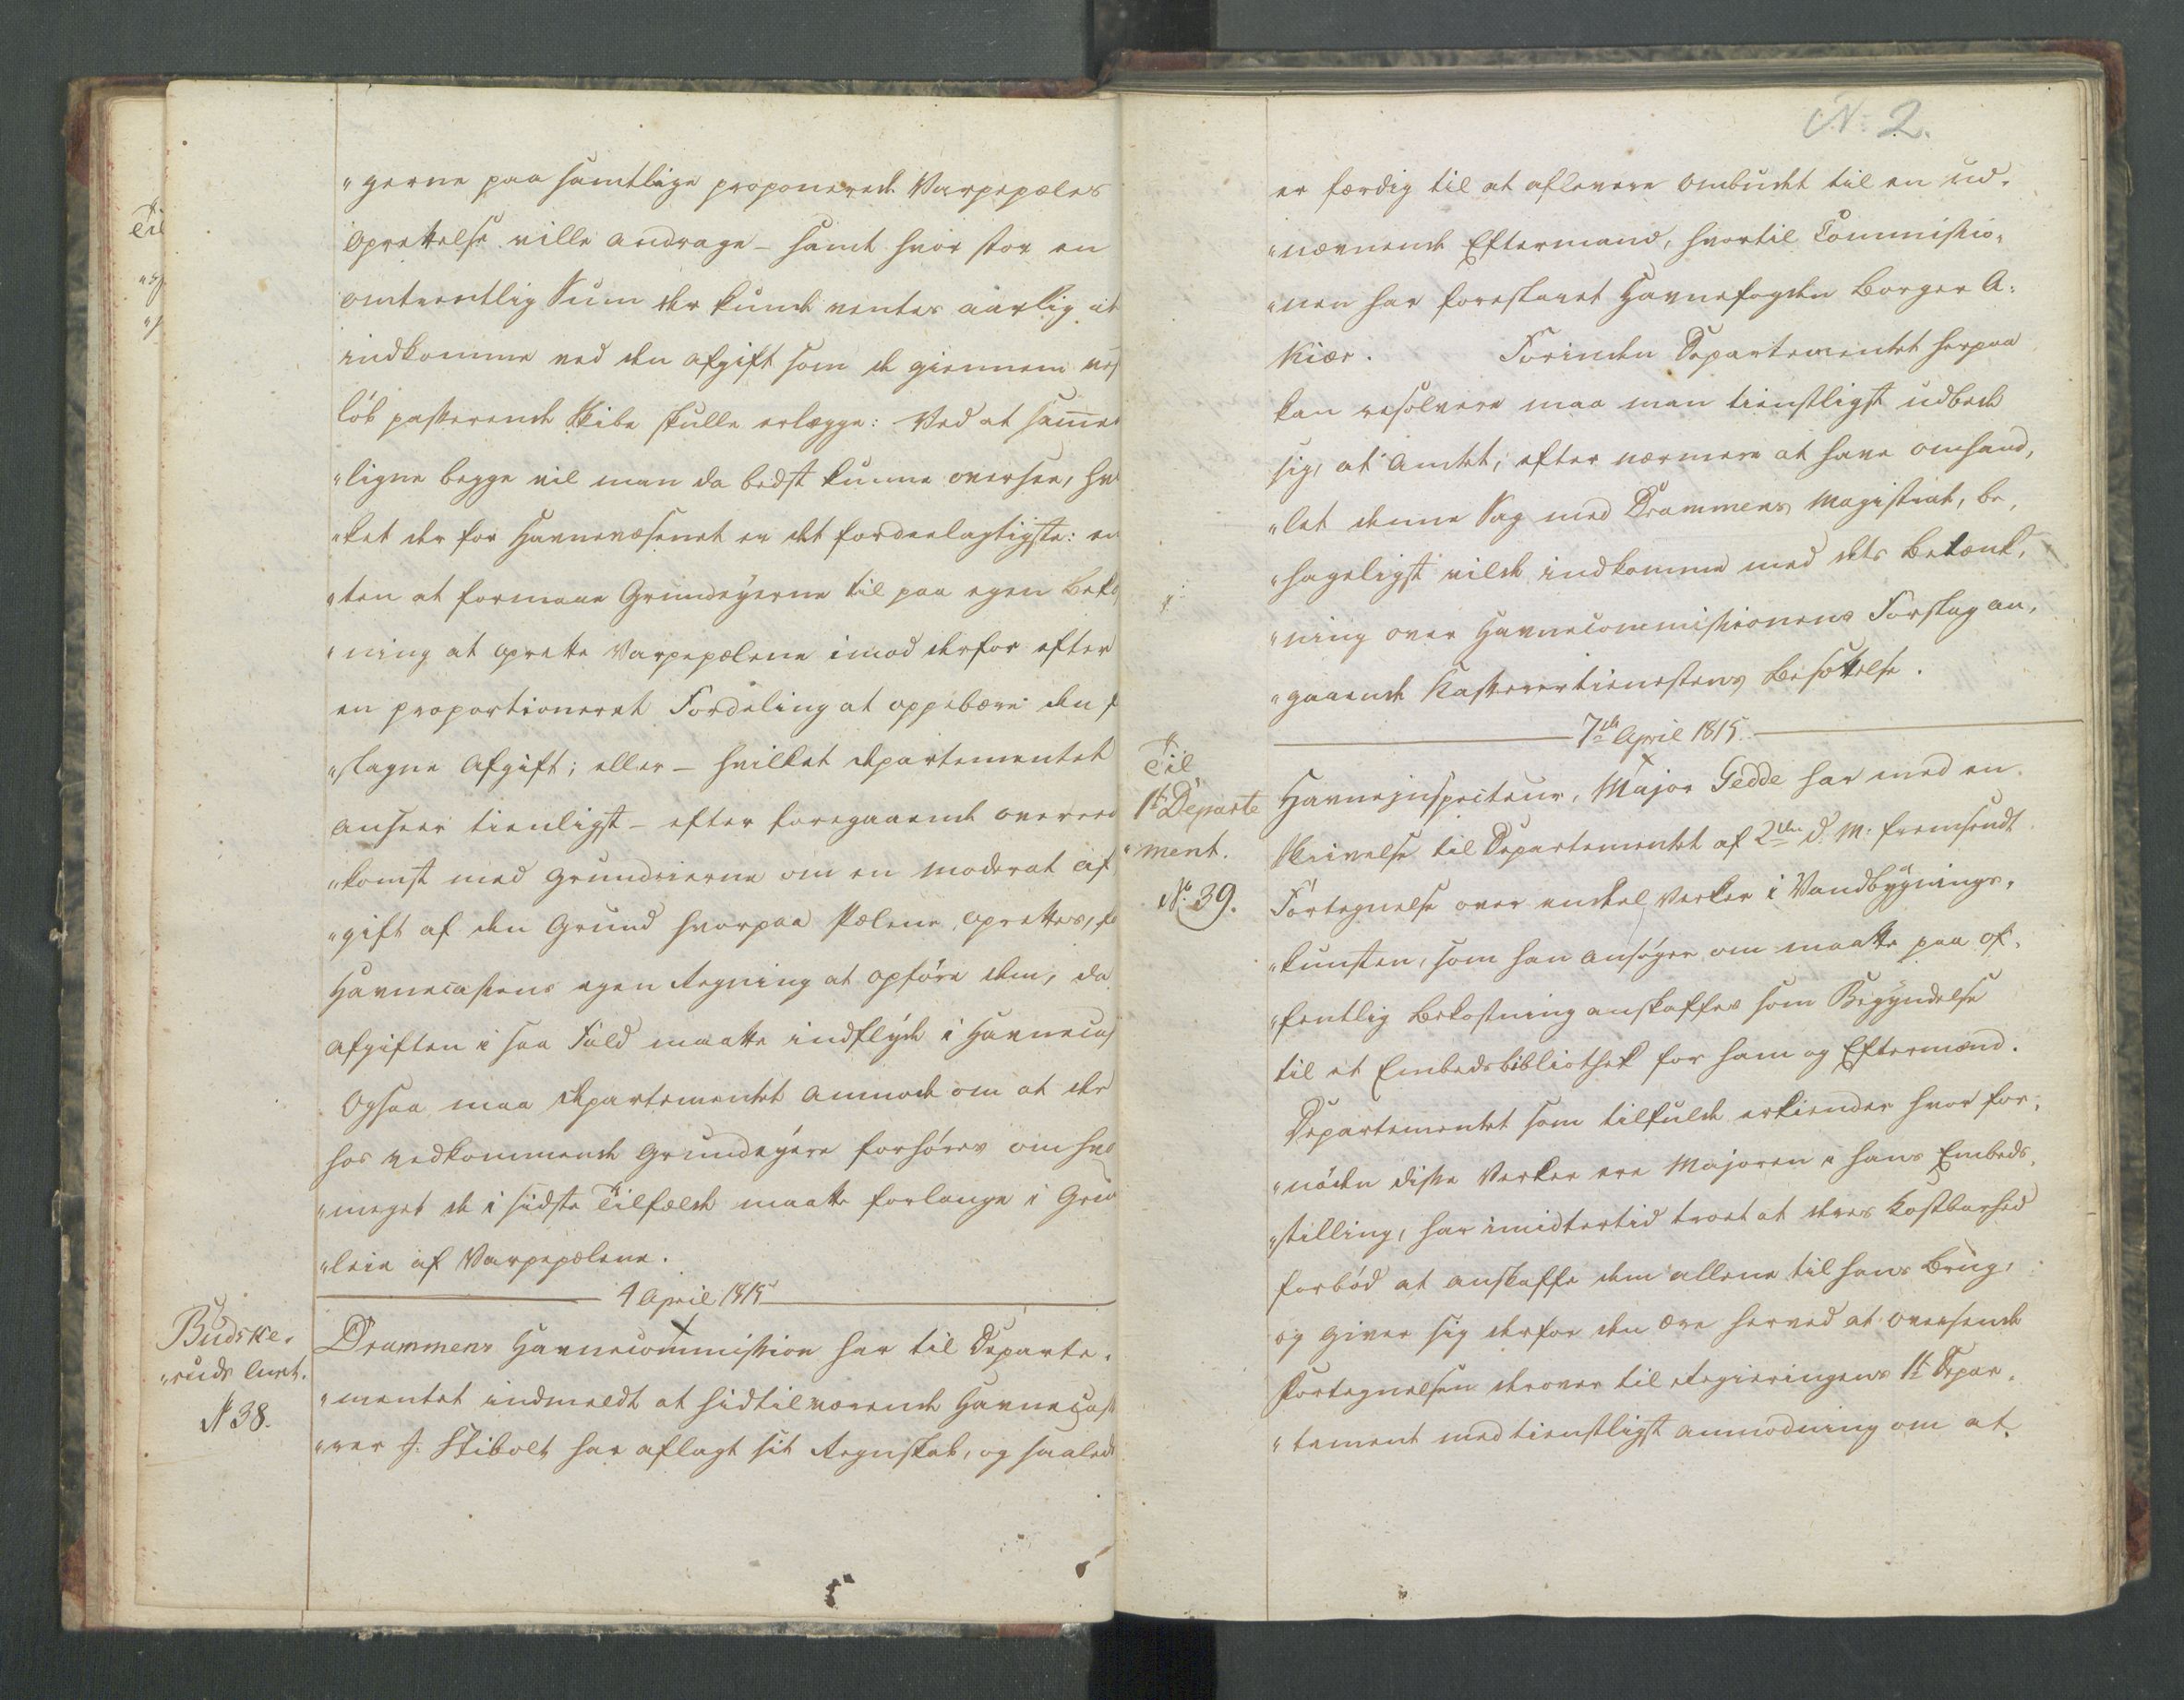 „gerne paa samtlige proponerede Varpepæles
Oprettelse ville andrage – samt hvor stor en
omtrentlig Sum der kunde ventes aarlig at
indkomme ved den Afgift som de giennem
löb passerende Skibe skulle erlægge: Ved at samen
„ligne begge vil man da bedst kunne oversee, hvil
„ket der for Havnevæsenet er det fordeelagtigste: en
„ten at formaae Grundeyerne til paa egen Beko
„ning at oprette Varpepælene imod derfor efter
en proportioneret Fordeling at oppebære den
„slagne Afgift; eller – hvilket Departementet
anseer tienligst – efter foregaaende overeens
„komst med Grundeierne om en moderat Af
„gift af den Grund hvorpaa Pælene oprettes,
Havnecassens egen Regning at opföre dem, da
Afgiften i saa Fald maatte indflyde i Havnecas
Ogsaa maa Departementet anmode om at der
hos vedkommende Grundeyere forhöres om hvor
„meget de i sidste Tilfælde maatte forlange i Grund
„leie af Varpepælene.
4 April 1815
Budske,
„ruds Amt.
N 38.
Drammens Havnecommission har til Departe,
„mentet indmeldt at hidtilværende Havnecass
„rer J. Stibolt har aflagt sit Regnskab, og saalede
N. 2.
er færdig til at aflevere Ombudet til en ud,
„nævnende Eftermand, hvortil Commissio,
„nen har foreslaaet Havnefogden Borger A:
Kiær. Forinden Departementet herpaa
kan resolvere maa man tienstligst udbede
sig, at Amtet, efter nærmere at have omhand,
„let denne Sag med Drammens Magistrat, be,
„hageligst vilde indkomme med dets Betænk,
„ning over Havnecommissionens Forslag an,
„gaaende Kasserertienestens Besættelse.
7de April 1815.
Til
1te Departe
„ment.
No 39.
Havneinspecteur, Major Gedde har med en
Skrivelse til Departementet af 2den d. M. fremsendt
Fortegnelse over endeel Verker i Vandbygnings,
„kunsten, som han ansöger om maatte paa of,
„fentlig Bekostning anskaffes som Begyndelse
til et Embedsbibliothek for ham og Eftermænd.
Departementet som tilfulde erkiender hvor for,
„nöden disse Verker ere Majoren i hans Embeds,
„stilling, har imidlertid troet at deres Kostbarhed
forböd at anskaffe dem allene til hans Brug,
og giver sig derfor den Ære herved at oversende
Fortegnelsen derover til Regieringens 1te Depar,
„tement med tienstligst Anmodning om at